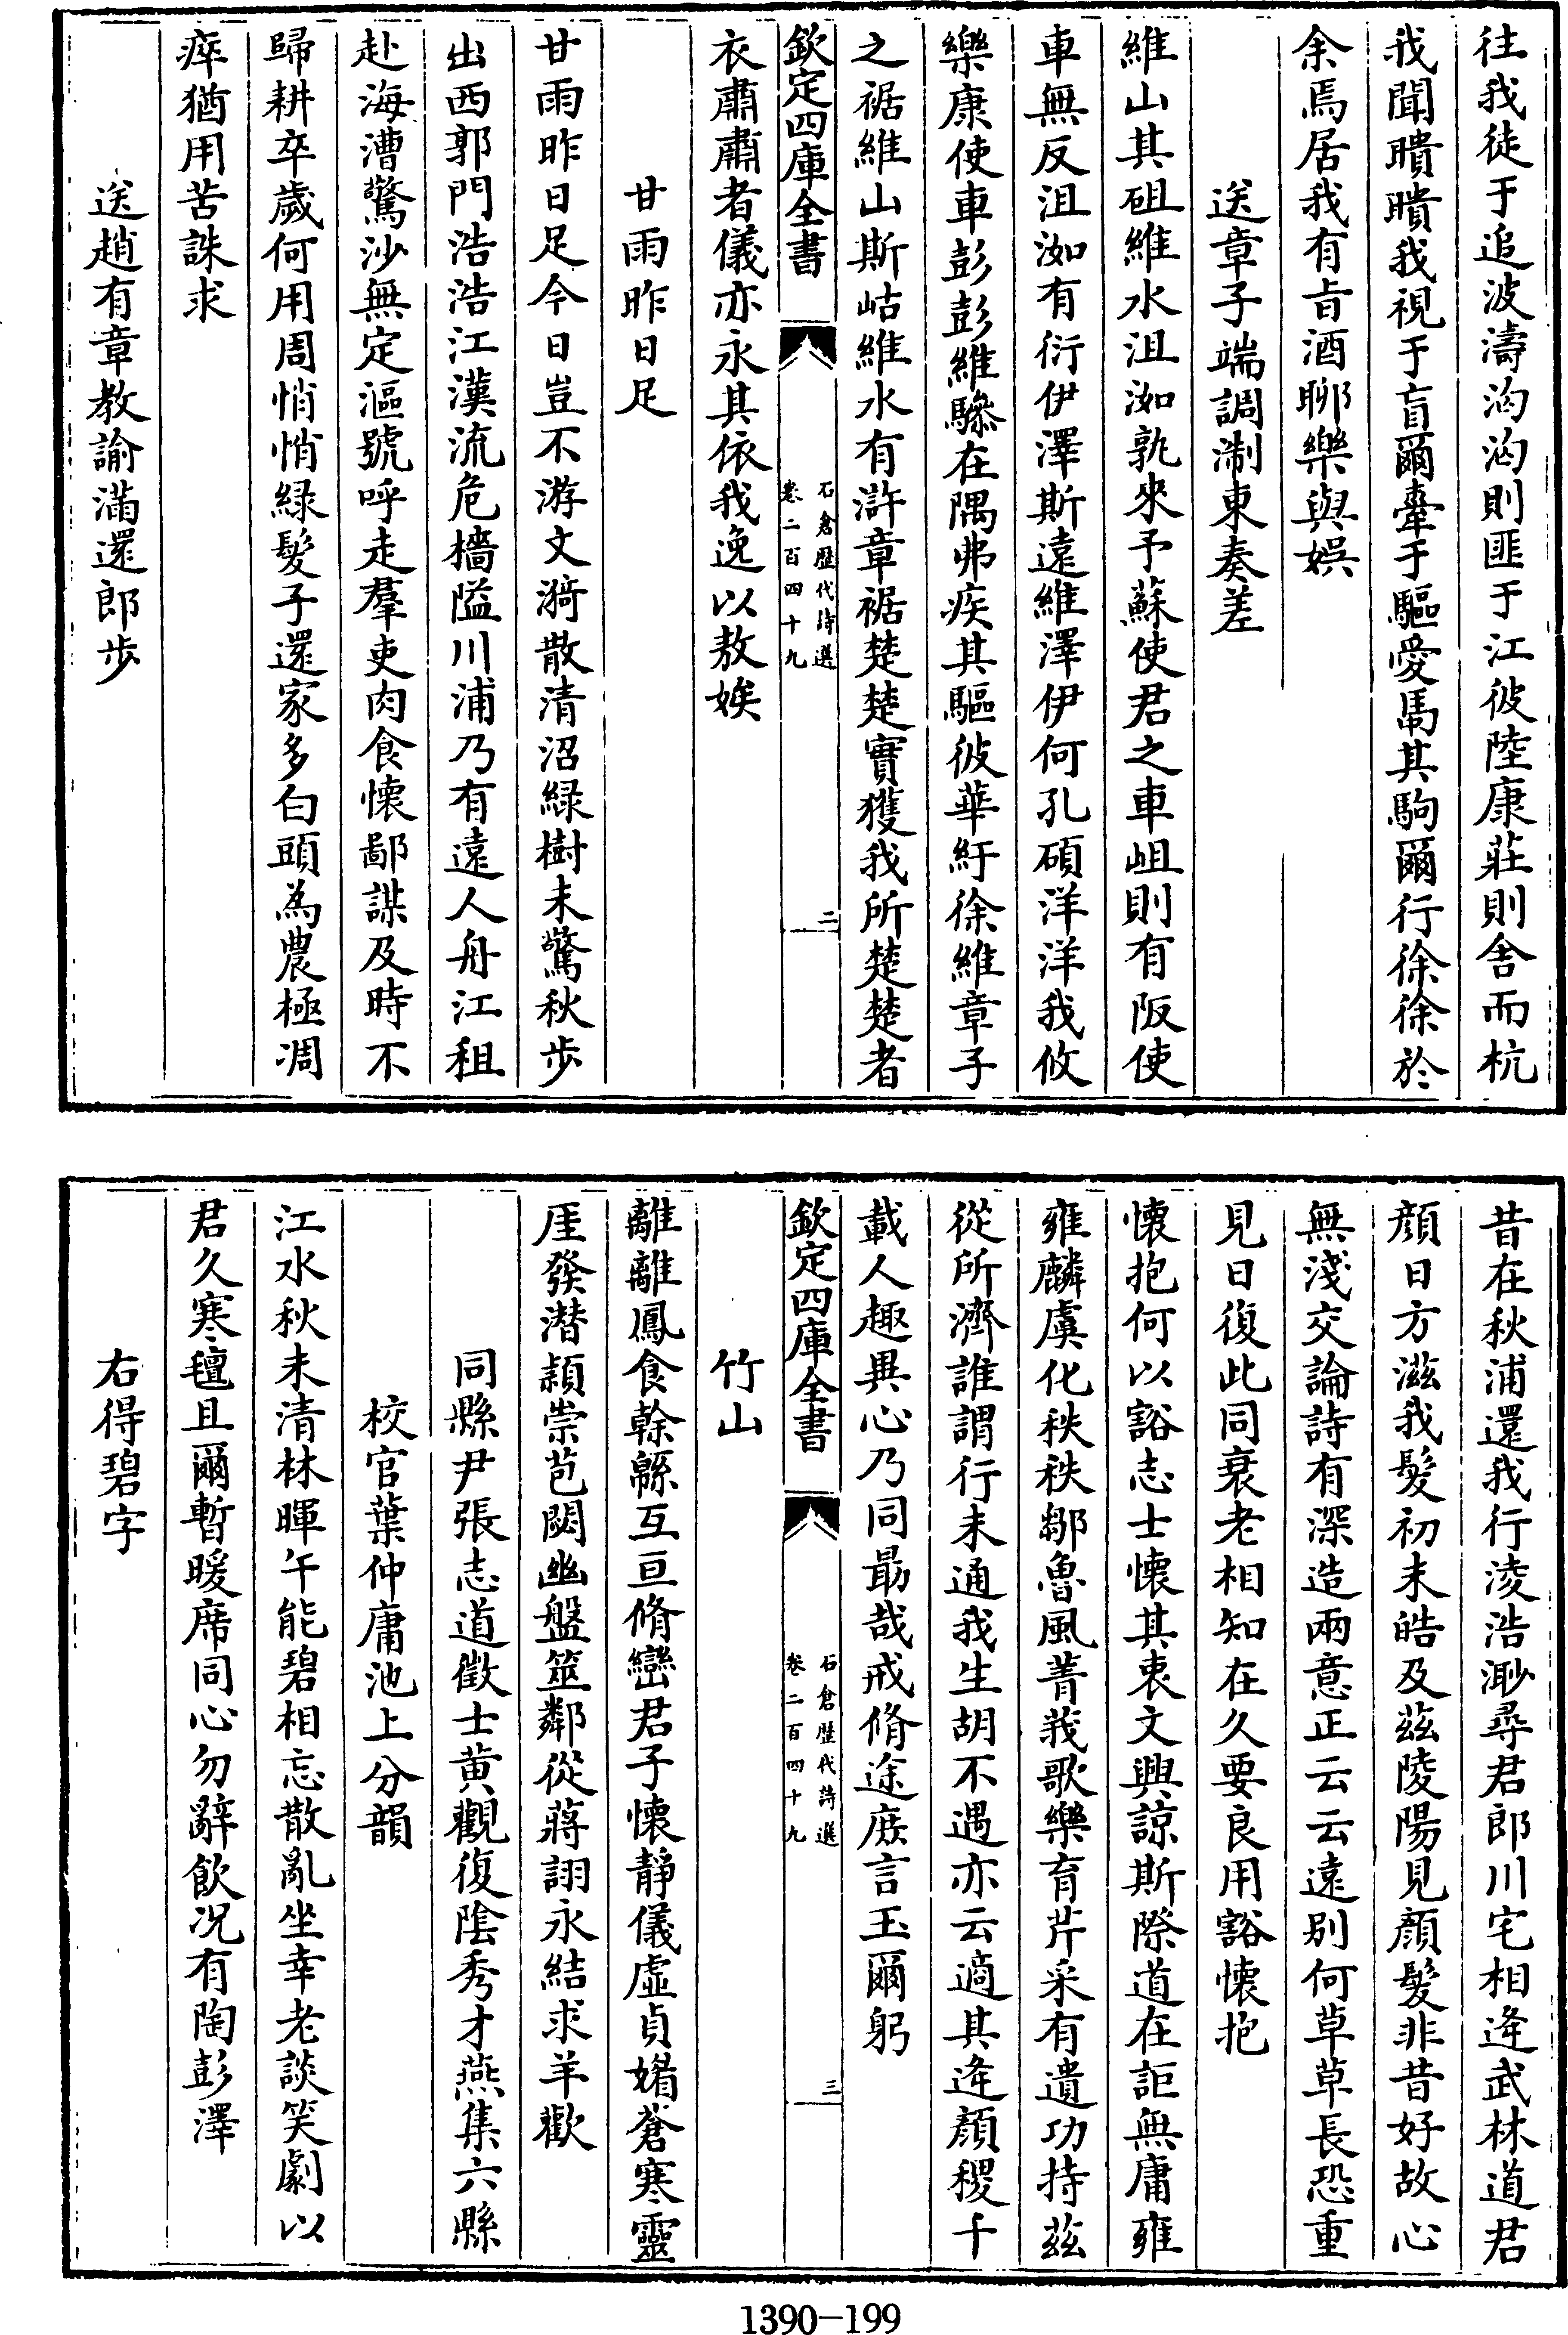 往我徒于追波濤洶洶則匪于江彼陸康莊則舍而杭
我聞瞶瞶我視于盲爾牽于驅愛馬其駒爾行徐徐於
余焉居我有旨酒聊樂與娛
送章子端調制東奏差
維山其砠維水沮洳孰來予蘇使君之車岨則有阪使
車無反沮洳有衍伊澤斯遠維澤伊何孔碩洋洋我攸
樂康使車彭彭維驂在隅弗疾其驅彼華紆徐維章子
之裾維山斯岵維水有滸章裾楚楚實獲我所楚楚者
欽定四庫全書
石倉歴代詩選
卷二百四十九
二
衣肅肅者儀亦永其依我逸以敖娭
甘雨昨日足
甘雨昨日足今日豈不游文漪散清沼緑樹未驚秋步
出西郭門浩浩江漢流危檣隘川浦乃有遠人舟江租
赴海漕驚沙無定漚號呼走羣吏肉食懷鄙謀及時不
歸耕卒歲何用周悄悄緑髮子還家多白頭為農極凋
瘁猶用苦誅求
送趙有章教諭滿還郎步
昔在秋浦還我行淩浩渺尋君郎川宅相逄武林道君
顔日方滋我髮初未皓及茲陵陽見顔髮非昔好故心
無淺交論詩有深造兩意正云云遠别何草草長恐重
見日復此同衰老相知在久要良用豁懷抱
懷抱何以豁志士懷其衷文興諒斯際道在詎無庸雍
雍麟虞化秩秩鄒魯風菁莪歌樂育芹采有遺功持茲
從所濟誰謂行未通我生胡不遇亦云適其逄顔稷千
載人趣異心乃同勖哉戒脩途庶言玉爾躬
欽定四庫全書
石倉歴代詩選
卷二百四十九
三
竹山
離離鳳食榦緜互亘脩巒君子懷靜儀虚貞媚蒼寒靈
厓發潜穎崇苞閟幽盤筮鄰從蔣詡永結求羊歡
同縣尹張志道徵士黄觀復隂秀才燕集六縣
校官葉仲庸池上分韻
江水秋未清林暉午能碧相忘散亂坐幸老談笑劇以
君久寒氊且爾暫暖席同心勿辭飲况有陶彭澤
右得碧字
1390-199